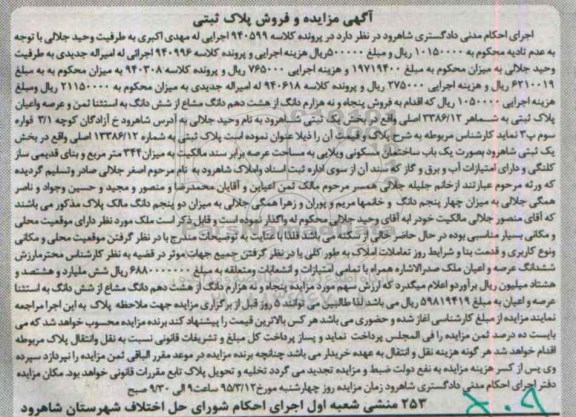 آگهی مزایده و فروش پلاک ثبتی
اجرای احکام مدنی دادگستری شاهرود در نظر دارد در پرونده کلاسه ۹۴۰۵۹۹ اجرایی له مهدی اکبری به طرفیت وحید جلالی با توجه
به عدم تادیه محکوم به ۱۰۱۵۰۰۰۰ ریال و مبلغ ۵۰۰۰۰۰ ریال هزینه اجرایی و پرونده کلاسه ۹۴۰۹۹۶ اجرائی له امیراله جدیدی به طرفیت
وحید جلالی به میزان محکوم به مبلغ ۱۹۷۱۹۴۰۰ و هزینه اجرایی ۷۶۵۰۰۰ ریال و پرونده کلاسه ۹۴۰۳۰۸ به میزان محکوم به به مبلغ
۶۲۱۰۰۱۹ ریال و هزینه اجرایی ۲۷۵۰۰۰ ریال و پرونده کلاسه ۹۴۰۶۱۸ له امیراله جدیدی به میزان محکوم به ۲۱۱۵۰۰۰۰ ریال ومبلغ
هزینه اجرایی ۱۰۵۰۰۰۰ ریال که اقدام به فروش پنجاه و نه هزارم دانگ از هشت دهم دانگ مشاع از شش دانگ به استثنا ثمن و عرصه واعیان
پلاک ثبتی به شماره ۱۳۳۸۶/۱۲ اصلی واقع در بخش یک ثبتی شاهرود به نام وحید جلالی به آدرس شاهرود خ آزادگان کوچه ۳/۱ فواره
سوم پ۳ نماید کارشناس مربوطه به شرح پلاک و قیمت آن را ذیلا عنوان نموده است پلاک ثبتی به شماره ۱۳۳۸۶/۱۲ اصلی واقع در بخش
یک ثبتی شاهرود بصورت یک باب ساختمان مسکونی ویلایی به مساحت عرصه برابر سند مالکیت به میزان ۳۴۴ متر مربع و بنای قدیمی ساز
کلنگی و دارای امتیازات آب و برق و گاز که سند آن از سوی اداره ثبت اسناد واملاک شاهرود به نام مرحوم اصغر جلالی صادر وتسلیم گردیده
که ورثه مرحوم عبارتند ازخانم جلیله جلالی همسر مرحوم مالک ثمن اعیانی و آقایان محمدرضا و منصور و مجید و حسین وجواد و ناصر
همگی جلالی به میزان چهار پنجم دانگ و خانمها مریم و پوران و زهرا همگی جلالی به میزان دو پنجم دانگ مالک پلاک مذکور می باشند
که آقای منصور جلالی مالکیت خودر ابه آقای وحید جلالی محکوم له واگذار نموده است و قابل ذکر است ملک مورد نظر دارای موقعیت محلی
و مکانی بسیار مناسبی بوده در حال حاضر خالی از سکنه می باشد فلذا با عنایت به توضیحات مندرج با در نظر گرفتن موقعیت محلی و مکانی
ونوع کاربری و قدمت بنا و شرایط روز تعاملات املاک به طور کلی با در نظر گرفتن جمیع جهات موثر در قضیه به نظر کارشناس محترم ارزش
ششدانگ عرصه و اعیان ملک صدرالاشاره همراه با تمامی امتیازات و انشعابات متعلقه به مبلغ ۶۸۸۰۰۰۰۰۰۰ ریال شش میلیارد و هشتصد و
هشتاد میلیون ریال برآورد و اعلام میگردد که ارزش سهم مورد مزایده پنجاه و نه هزارم دانگ از هشت دهم دانگ مشاع از شش دانگ به استثنا
عرصه و اعیان به مبلغ ۵۹۸۱۹۴۱۹ ریال می باشد لذا طالبین می توانند ۵ روز قبل از برگزاری مزایده جهت ملاحظه پلاک به این اجرا مراجعه
نمایند مزایده از مبلغ کارشناسی آغاز شده و حضوری می باشد هر کس بالاترین قیمت را پیشنهاد کند برنده مزایده محسوب خواهد شد که می
بایست ده درصد ثمن مزایده را فی المجلس پرداخت نماید و پساز پرداخت کل مبلغ و تشریفات قانونی نسبت به نقل وانتقال پلاک مربوطه
اقدام خواهد شد هر گونه هزینه نقل و انتقال به عهده خریدار می باشد چنانچه برنده مزایده در موعد مقرر الباقی ثمن مزایده را نپردازد سپرده
وی پس از کسر هزینه مزایده به نفع دولت ضبط و مزایده تجدید می گردد تخلیه و تحویل پلاک تابع مقررات قانونی خواهد بود. مکان مزایده
دفتر اجرای احکام مدنی دادگستری شاهرود زمان مزایده روز چهارشنبه مورخ ۹۵/۳/۱۲ ساعت ۹ الی ۹/۳۰ صبح
۲۵۳ منشی شعبه اول اجرای احکام شورای حل اختلاف شهرستان شاهرود